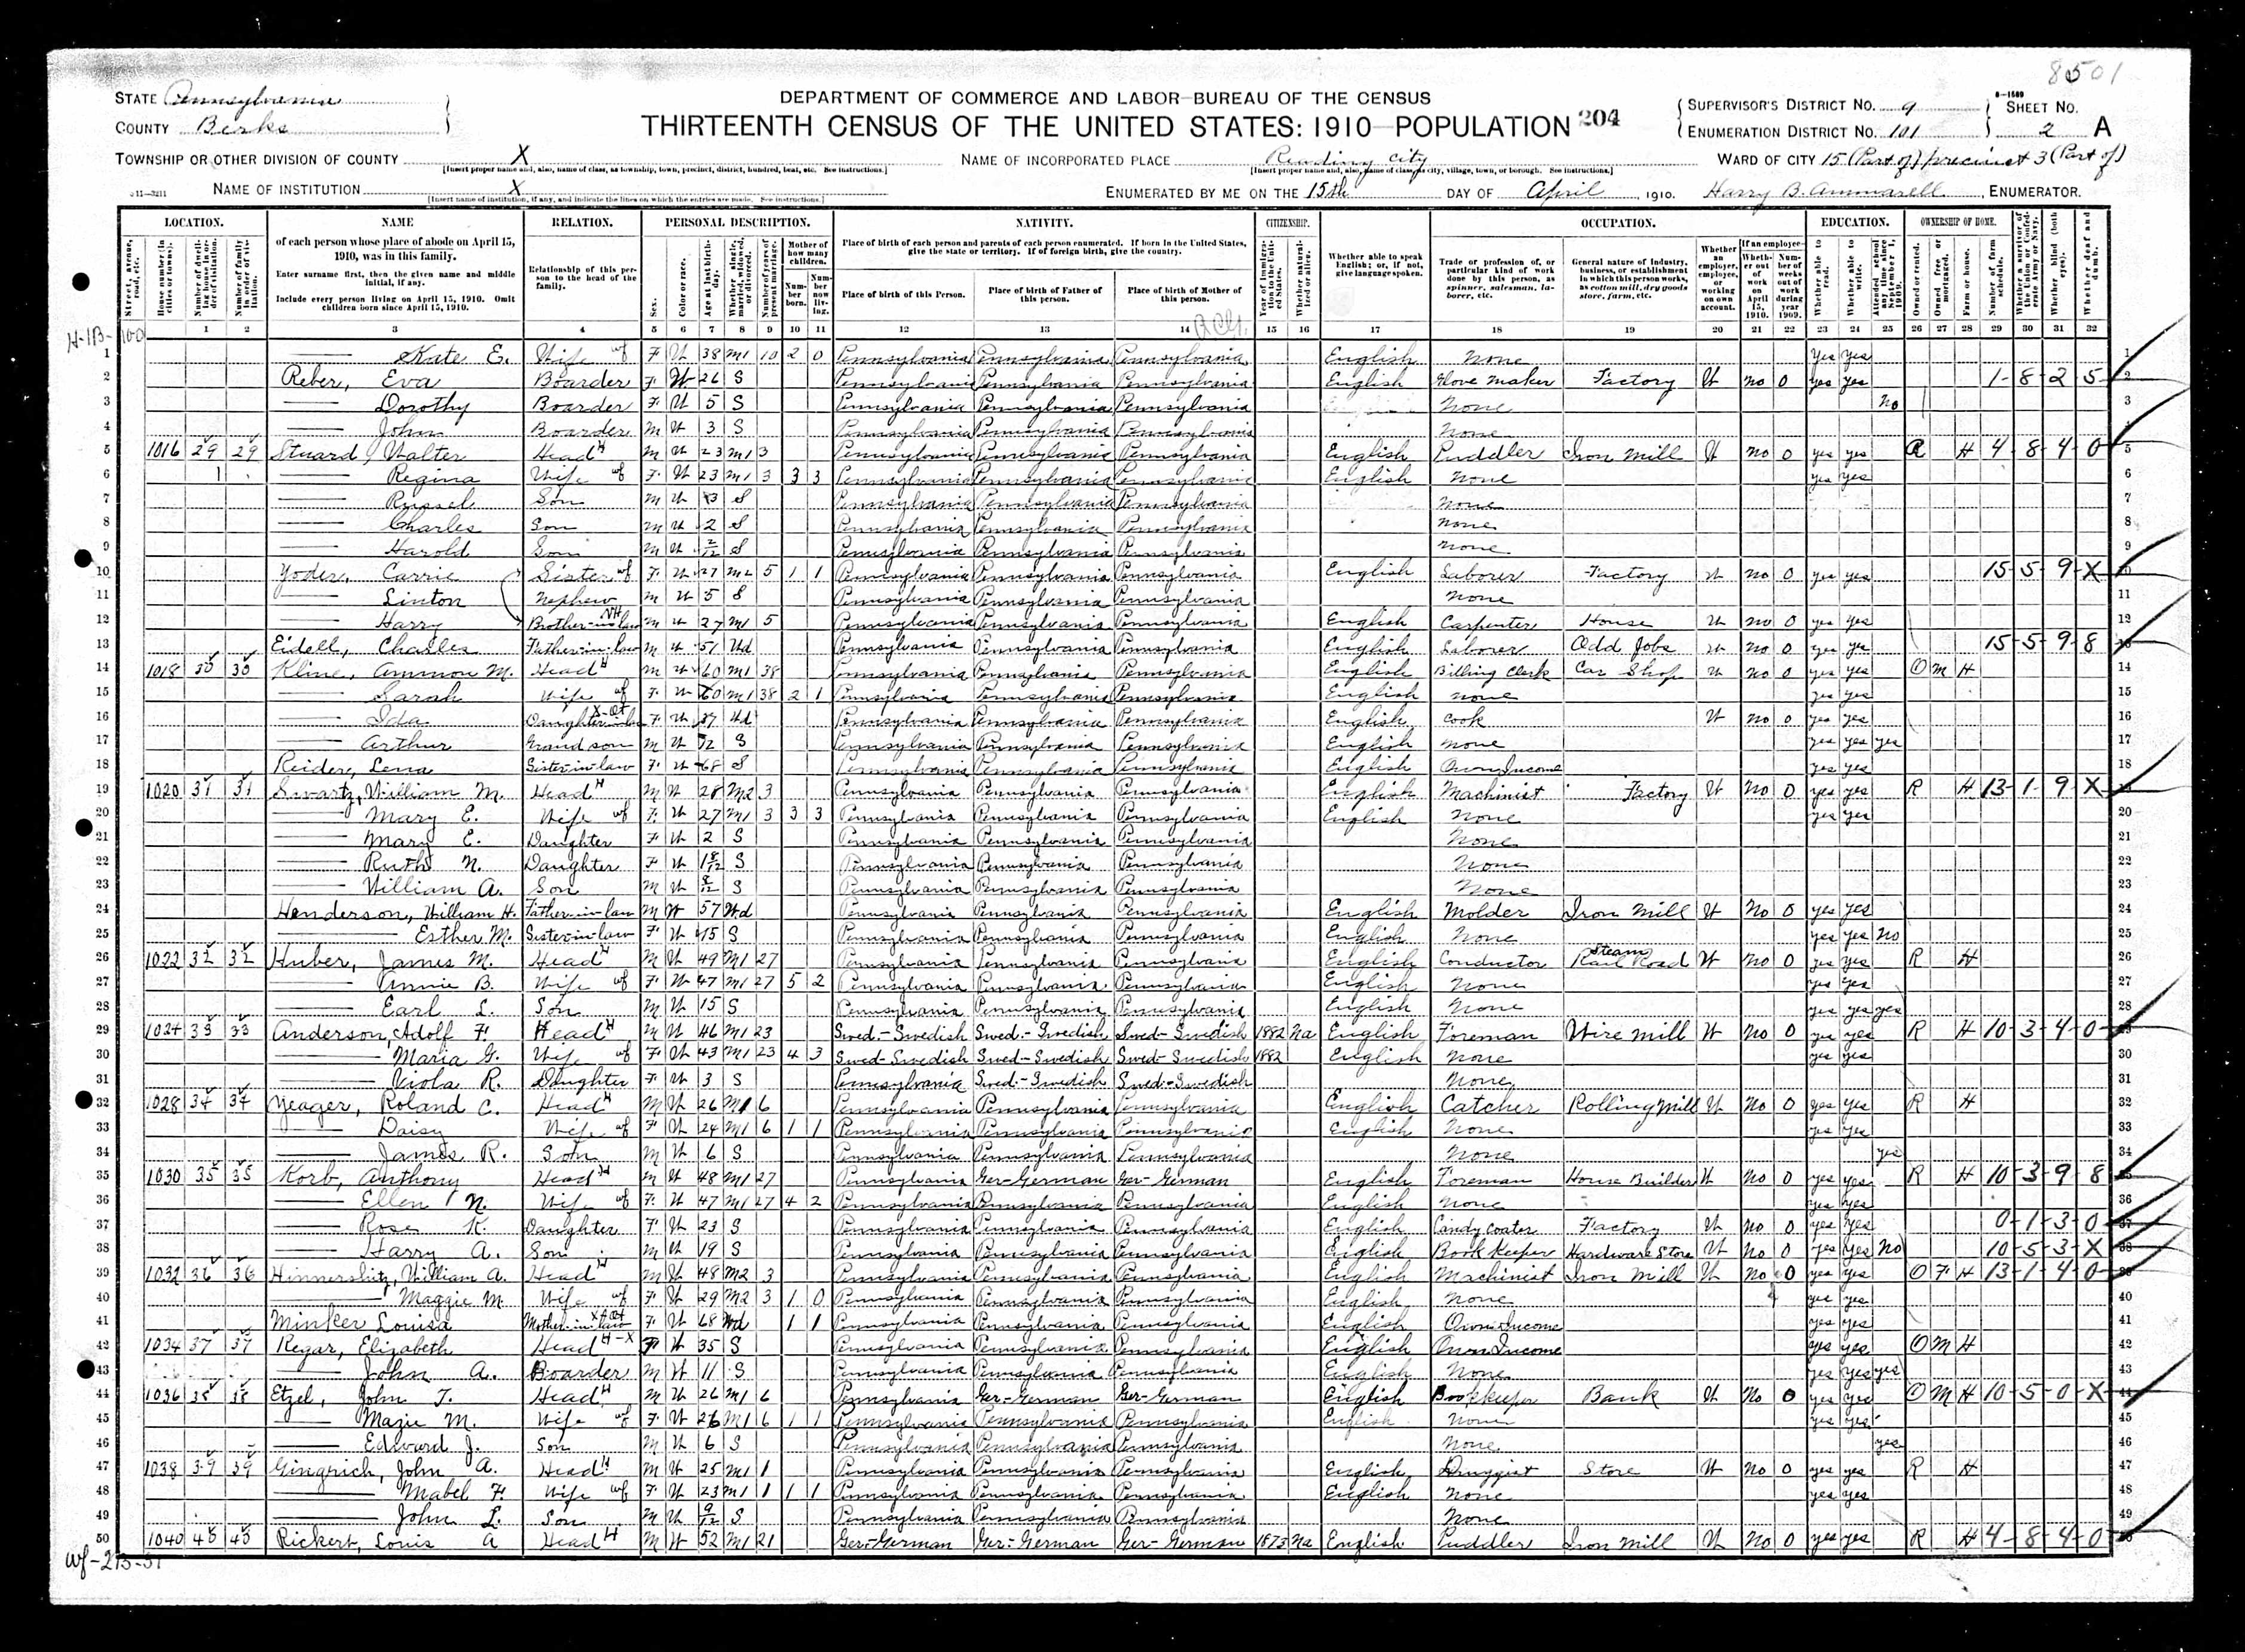 8501
STATE Pennsylvania
COUNTY Berks
DEPARTMENT OF COMMERCE AND LABOR—BUREAU OF THE CENSUS
THIRTEENTH CENSUS OF THE UNITED STATES: 1910—POPULATION 204
SUPERVISOR'S DISTRICT No. 9
ENUMERATION DISTRICT No. 101
8—1689
SHEET No.
2 A
TOWNSHIP OR OTHER DIVISION OF COUNTY X
NAME OF INCORPORATED PLACE Reading City
WARD OF CITY 15 (Part of) precinct 3 (Part of)
NAME OF INSTITUTION X
ENUMERATED BY ME ON THE 15th DAY OF April, 1910. Harry B. Ammarell, ENUMERATOR.
LOCATION. NAME RELATION. PERSONAL DESCRIPTION. NATIVITY. CITIZENSHIP. OCCUPATION. EDUCATION. OWNERSHIP OF HOME.
of each person whose place of abode on April 15, 1910, was in this family.
Enter surname first, then the given name and middle initial, if any.
Include every person living on April 15, 1910. Omit children born since April 15, 1910.
Relationship of this person to the head of the family.
Place of birth of each person and parents of each person enumerated. If born in the United States, give the state or territory. If of foreign birth, give the country.
Place of birth of this Person. Place of birth of Father of this person. Place of birth of Mother of this person.
Whether able to speak English; or, if not, give language spoken.
Trade or profession of, or particular kind of work done by this person, as spinner, salesman, laborer, etc.
General nature of industry, business, or establishment in which this person works, as cotton mill, dry goods store, farm, etc.
1 2 3 4 5 6 7 8 9 10 11 12 13 14 15 16 17 18 19 20 21 22 23 24 25 26 27 28 29 30 31 32
1 — Kate E. Wife F W 38 M1 10 2 0 Pennsylvania Pennsylvania Pennsylvania English None Yes Yes
2 Reber, Eva Boarder F W 26 S Pennsylvania Pennsylvania Pennsylvania English Glove maker Factory W no 0 yes yes 1-8-2-5
3 — Dorothy Boarder F W 5 S Pennsylvania Pennsylvania Pennsylvania None No
4 — John Boarder M W 3 S Pennsylvania Pennsylvania Pennsylvania None
5 1016 29 29 Stuard, Walter Head M W 23 M1 3 Pennsylvania Pennsylvania Pennsylvania English Puddler Iron Mill W no 0 yes yes R H 4-8-4-0
6 — Regina Wife F W 23 M1 3 3 3 Pennsylvania Pennsylvania Pennsylvania English None yes yes
7 — Russel Son M W 3 S Pennsylvania Pennsylvania Pennsylvania None
8 — Charles Son M W 2 S Pennsylvania Pennsylvania Pennsylvania None
9 — Harold Son M W 2/12 S Pennsylvania Pennsylvania Pennsylvania None
10 Yoder, Carrie Sister F W 27 M2 5 1 1 Pennsylvania Pennsylvania Pennsylvania English Laborer Factory W no 0 yes yes 15-5-9-X
11 — Linton Nephew M W 5 S Pennsylvania Pennsylvania Pennsylvania None
12 — Harry Brother-in-law M W 27 M1 5 Pennsylvania Pennsylvania Pennsylvania English Carpenter House W no 0 yes yes
13 Eidell, Charles Father-in-law M W 51 Wd Pennsylvania Pennsylvania Pennsylvania English Laborer Odd Jobs W no 0 yes yes 15-5-9-8
14 1018 30 30 Kline, Ammon M. Head M W 60 M1 38 Pennsylvania Pennsylvania Pennsylvania English Billing Clerk Car Shop W no 0 yes yes O M H
15 — Sarah Wife F W 60 M1 38 2 1 Pennsylvania Pennsylvania Pennsylvania English none yes yes
16 — Ida Daughter-in-law F W 37 Wd Pennsylvania Pennsylvania Pennsylvania English Cook W no 0 yes yes
17 — Arthur Grandson M W 12 S Pennsylvania Pennsylvania Pennsylvania English none yes yes yes
18 Reider, Lena Sister-in-law F W 68 S Pennsylvania Pennsylvania Pennsylvania English Own Income yes yes
19 1020 31 31 Swartz, William M. Head M W 28 M2 3 Pennsylvania Pennsylvania Pennsylvania English Machinist Factory W No 0 yes yes R H 13-1-9-X
20 — Mary E. Wife F W 27 M1 3 3 3 Pennsylvania Pennsylvania Pennsylvania English None yes yes
21 — Mary E. Daughter F W 2 S Pennsylvania Pennsylvania Pennsylvania None
22 — Ruth N. Daughter F W S Pennsylvania Pennsylvania Pennsylvania None
23 — William A. Son M W S Pennsylvania Pennsylvania Pennsylvania None
24 Henderson, William H. Father-in-law M W 57 Wd Pennsylvania Pennsylvania Pennsylvania English Molder Iron Mill W No 0 yes yes
25 — Esther M. Sister-in-law F W 15 S Pennsylvania Pennsylvania Pennsylvania English None yes yes No
26 1022 32 32 Huber, James M. Head M W 49 M1 27 Pennsylvania Pennsylvania Pennsylvania English Conductor Steam Rail Road W No 0 yes yes R H
27 — Annie B. Wife F W 47 M1 27 5 2 Pennsylvania Pennsylvania Pennsylvania English None yes yes
28 — Earl L. Son M W 15 S Pennsylvania Pennsylvania Pennsylvania English None yes yes yes
29 1024 33 33 Anderson, Adolf F. Head M W 46 M1 23 Swed.-Swedish Swed.-Swedish Swed-Swedish 1882 Na English Foreman Wire Mill W no 0 yes yes R H 10-3-4-0
30 — Maria G. Wife F W 43 M1 23 4 3 Swed-Swedish Swed-Swedish Swed-Swedish 1882 English None yes yes
31 — Viola R. Daughter F W 3 S Pennsylvania Swed.-Swedish Swed-Swedish None
32 1028 34 34 Yeager, Roland C. Head M W 26 M1 6 Pennsylvania Pennsylvania Pennsylvania English Catcher Rolling Mill W No 0 yes yes R H
33 — Daisy Wife F W 24 M1 6 1 1 Pennsylvania Pennsylvania Pennsylvania English None yes yes
34 — James R. Son M W 6 S Pennsylvania Pennsylvania Pennsylvania None yes
35 1030 35 35 Korb, Anthony Head M W 48 M1 27 Pennsylvania Ger-German Ger-German English Foreman House Builder W No 0 yes yes R H 10-3-9-8
36 — Ellen N. Wife F W 47 M1 27 4 2 Pennsylvania Pennsylvania Pennsylvania English None yes yes
37 — Rose K. Daughter F W 23 S Pennsylvania Pennsylvania Pennsylvania English Candy Coater Factory W no 0 yes yes 0-1-3-0
38 — Harry A. Son M W 19 S Pennsylvania Pennsylvania Pennsylvania English Book Keeper Hardware Store W No 0 yes yes No 10-5-3-X
39 1032 36 36 Hinnershitz, William A. Head M W 48 M2 3 Pennsylvania Pennsylvania Pennsylvania English Machinist Iron Mill W No 0 yes yes O F H 13-1-4-0
40 — Maggie M. Wife F W 29 M2 3 1 0 Pennsylvania Pennsylvania Pennsylvania English None yes yes
41 Minker Louisa Mother-in-law F W 68 Wd 1 1 Pennsylvania Pennsylvania Pennsylvania English Own Income yes yes
42 1034 37 37 Regar, Elizabeth Head F W 35 S Pennsylvania Pennsylvania Pennsylvania English Own Income yes yes O M H
43 — John A. Boarder M W 11 S Pennsylvania Pennsylvania Pennsylvania English None yes yes yes
44 1036 38 38 Etzel, John T. Head M W 26 M1 6 Pennsylvania Ger-German Ger-German English Bookkeeper Bank W No 0 yes yes O M H 10-5-0-X
45 — Mazie M. Wife F W 26 M1 6 1 1 Pennsylvania Pennsylvania Pennsylvania English None yes yes
46 — Edward J. Son M W 6 S Pennsylvania Pennsylvania Pennsylvania None yes
47 1038 39 39 Gingrich, John A. Head M W 25 M1 1 Pennsylvania Pennsylvania Pennsylvania English Druggist Store W No 0 yes yes R H
48 — Mabel F. Wife F W 23 M1 1 1 1 Pennsylvania Pennsylvania Pennsylvania English None yes yes
49 — John L. Son M W 9/12 S Pennsylvania Pennsylvania Pennsylvania None
50 1040 40 40 Rickert, Louis A Head M W 52 M1 21 Ger-German Ger-German Ger-German 1873 Na English Puddler Iron Mill W No 0 yes yes R H 4-8-4-0